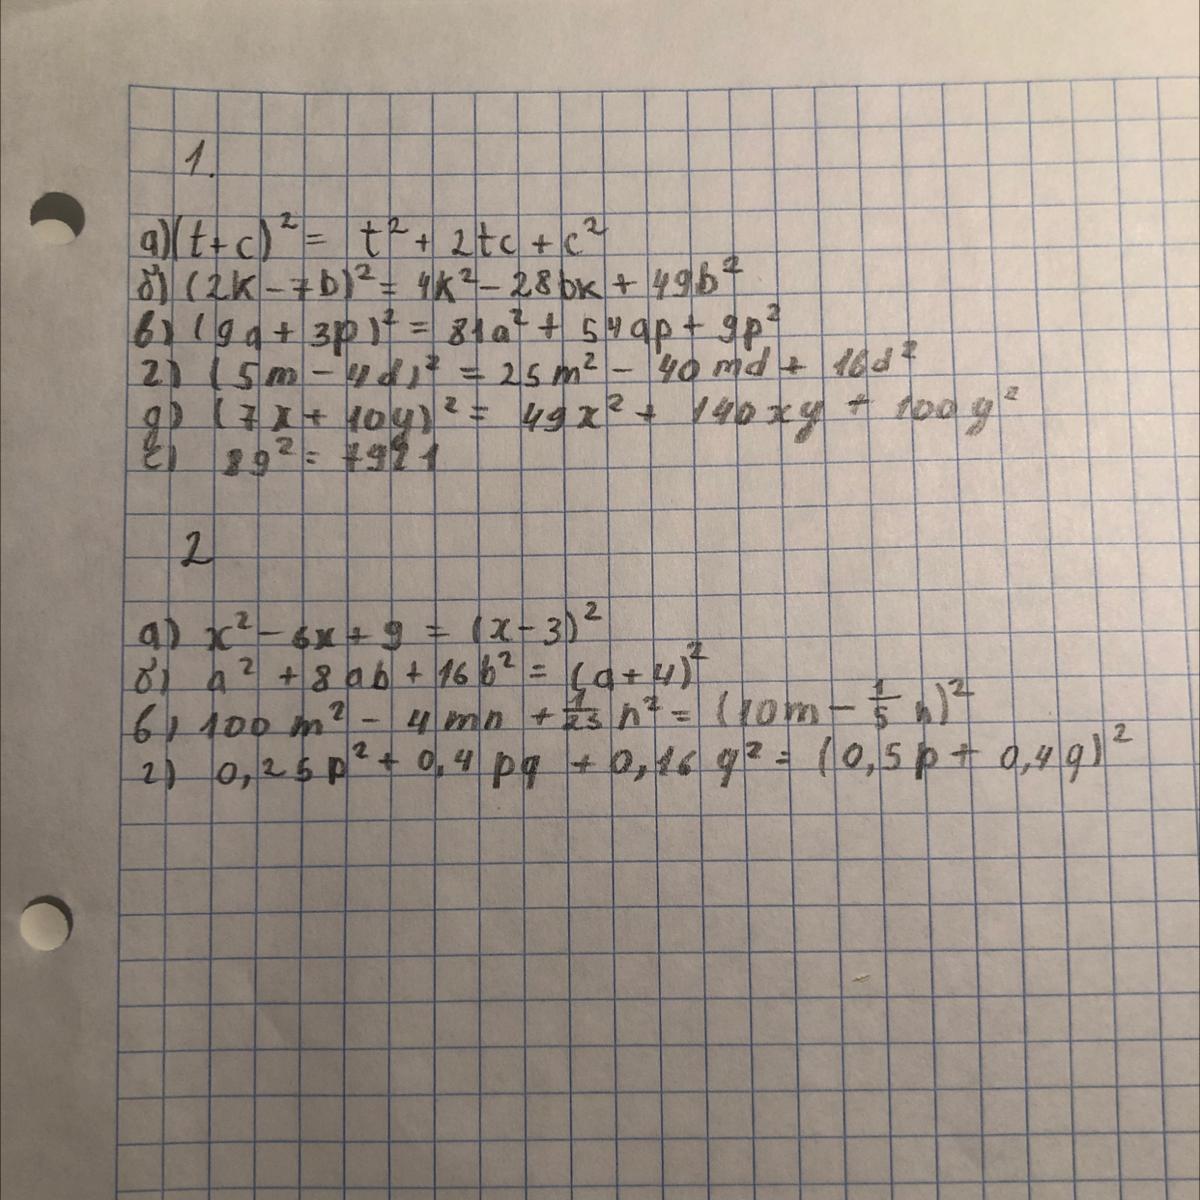 1.
а) (t+c)² = t² + 2tc + c²
б) (2k - 7b)² = 4k² - 28bk + 49b²
в) (9a + 3p)² = 81a² + 54ap + 9p²
г) (5m - 4d)² = 25m² - 40md + 16d²
д) (7x + 10y)² = 49x² + 140xy + 100y²
е) 89² = 7921
2
а) x² - 6x + 9 = (x - 3)²
б) a² + 8ab + 16b² = (a + 4)²
в) 100m² - 4mn + 1/25 n² = (10m - 1/5 n)²
г) 0,25p² + 0,4pq + 0,16q² = (0,5p + 0,4q)²